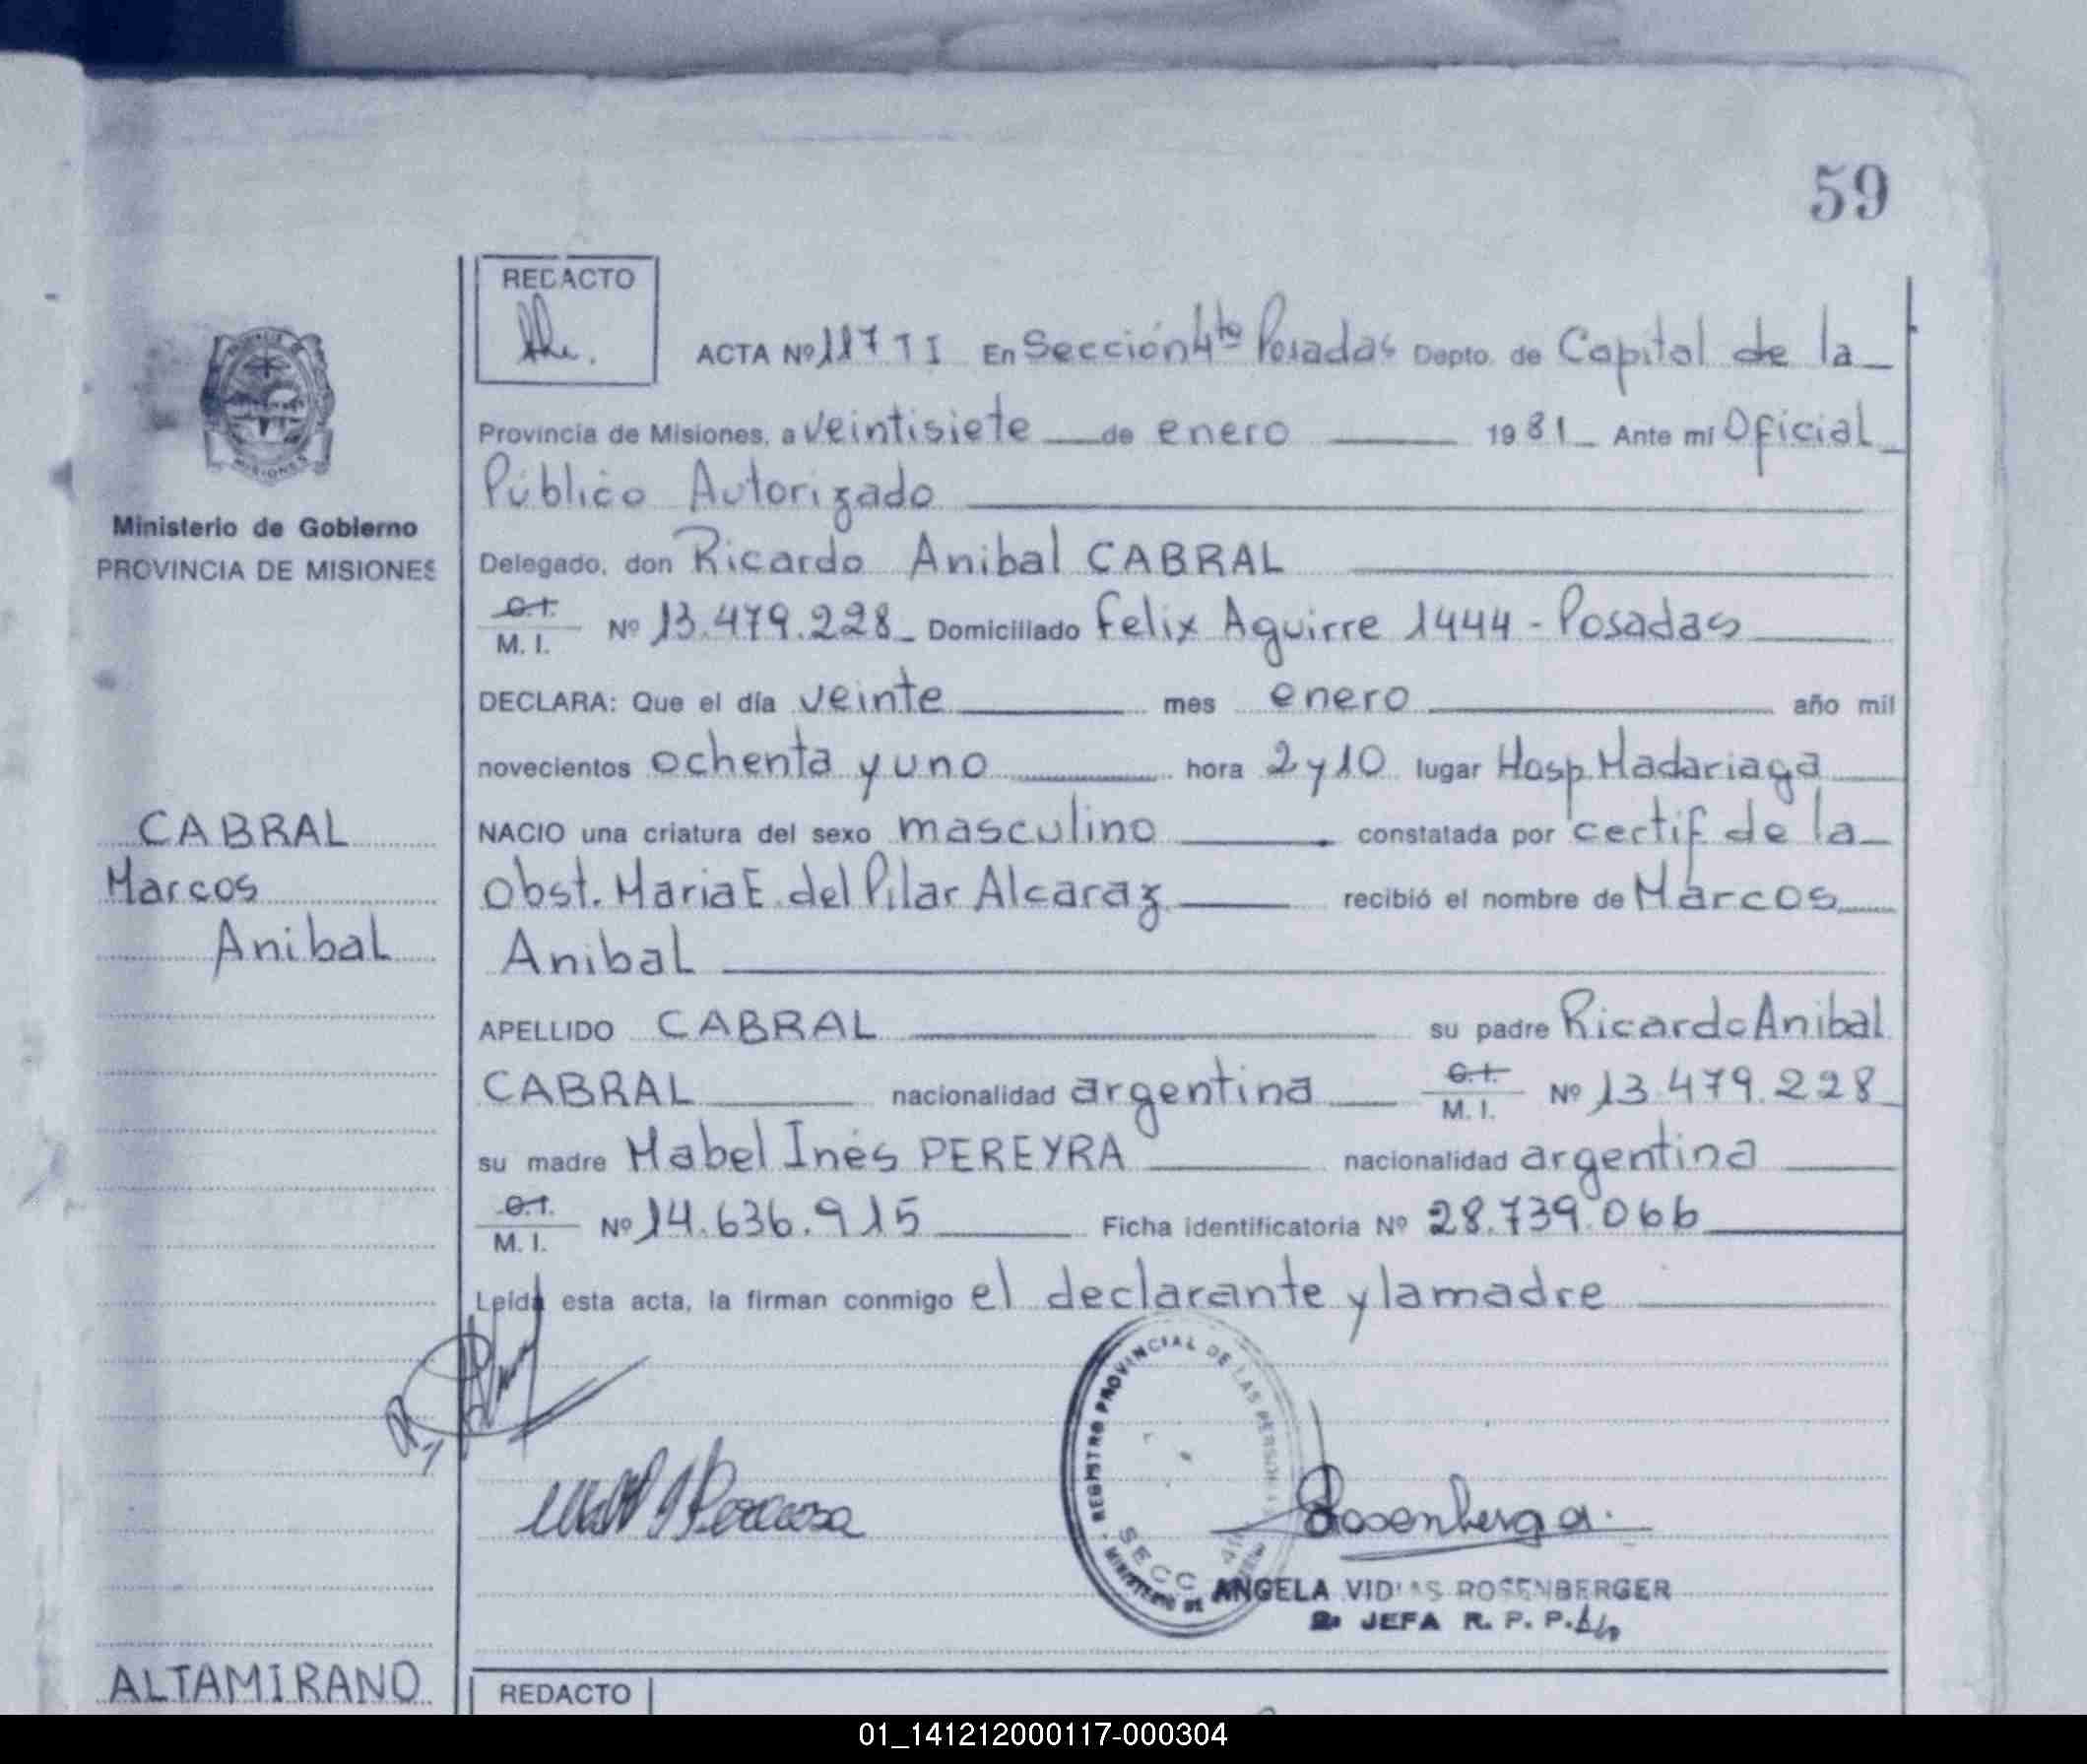 59
REDACTO
ACTA Nº 117 T I En Sección 4ta Posadas Depto. de Capital de la
Provincia de Misiones, a veintisiete de enero 1981 Ante mi Oficial
Público Autorizado
Ministerio de Gobierno
PROVINCIA DE MISIONES
Delegado, don Ricardo Anibal CABRAL
C.I.
M. I. Nº 13.479.228 Domiciliado Felix Aguirre 1444 - Posadas
DECLARA: Que el día veinte mes enero año mil
novecientos ochenta y uno hora 2 y 10 lugar Hosp. Madariaga
CABRAL
Marcos
Anibal
NACIO una criatura del sexo masculino constatada por certif de la
Obst. Maria E. del Pilar Alcaraz recibió el nombre de Marcos
Anibal
APELLIDO CABRAL su padre Ricardo Anibal
CABRAL nacionalidad argentina C.I. M. I. Nº 13.479.228
su madre Mabel Inés PEREYRA nacionalidad argentina
C.I.
M. I. Nº 14.636.915 Ficha identificatoria Nº 28.739.066
Leida esta acta, la firman conmigo el declarante y la madre
REGISTRO PROVINCIAL DE LAS PERSONAS
SECC 4ta
MINISTERIO DE
Rosenberg
ANGELA ROSENBERGER
JEFA R. P. P.
ALTAMIRANO
REDACTO
01_141212000117-000304